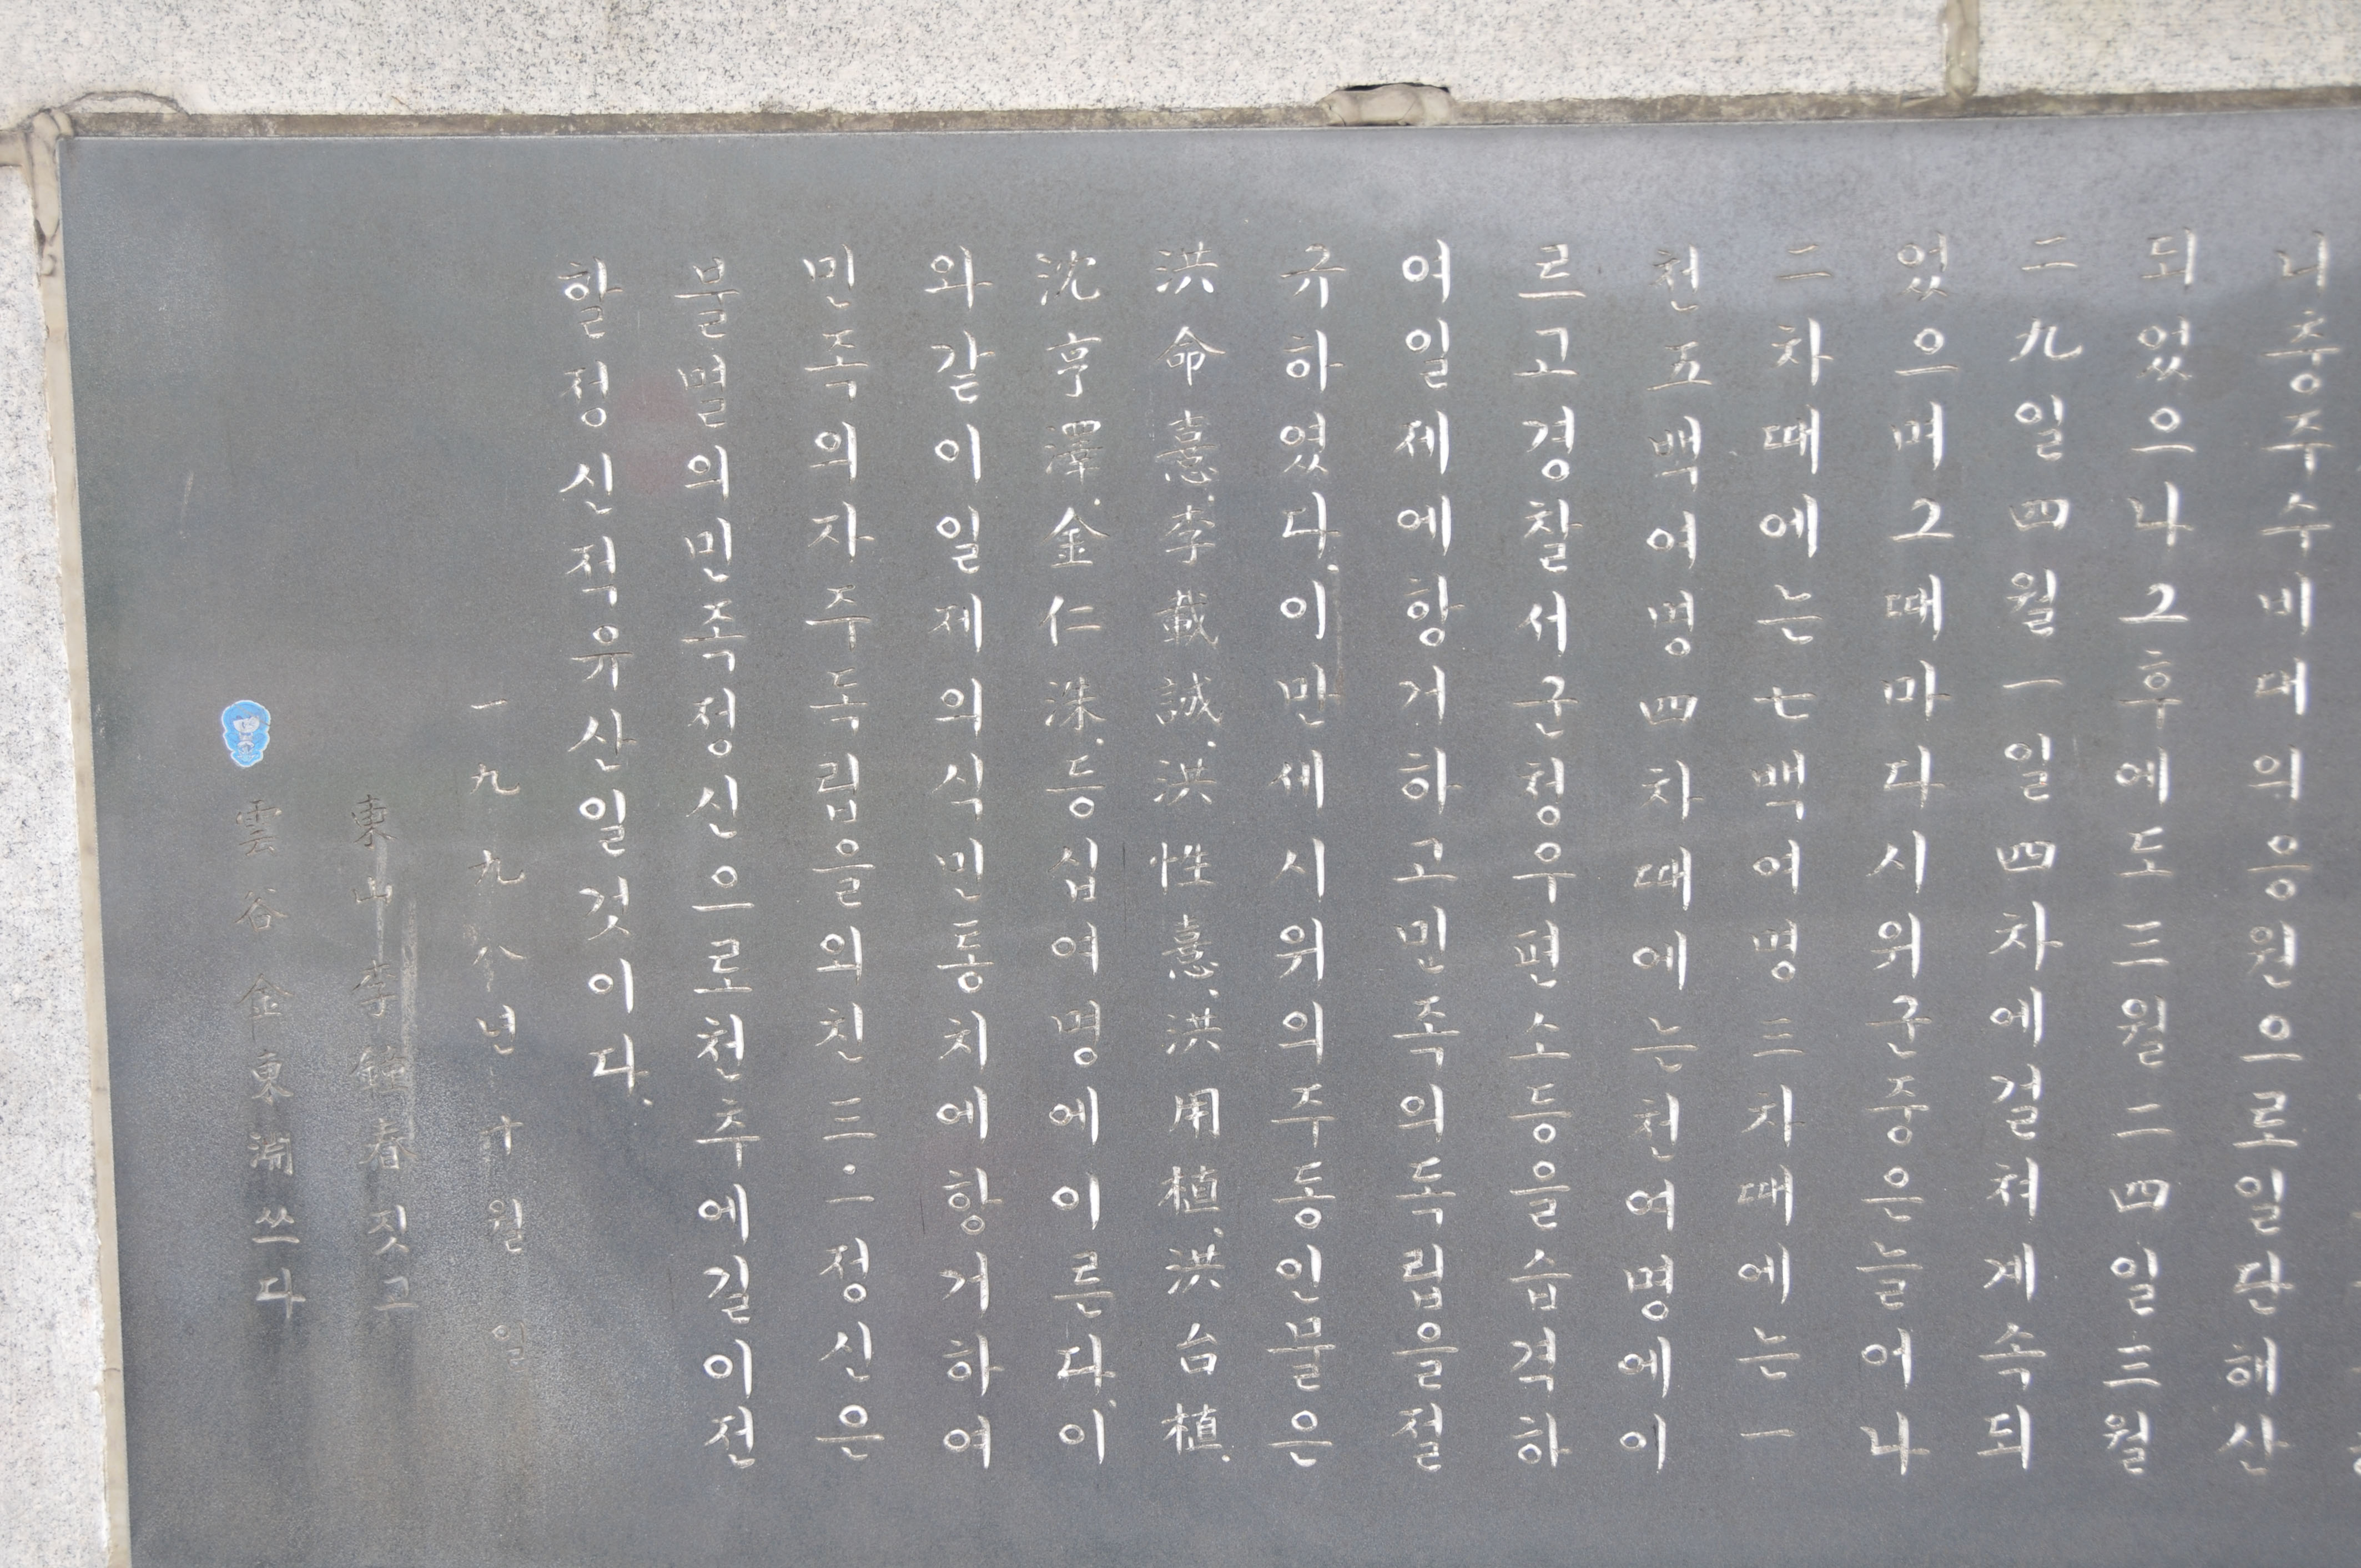 니충주수비대의응원으로일단해산
되었으나그후에도三월二四일三월
二九일四월一일四차에걸쳐계속되
었으며그때마다시위군중은늘어나
二차때에는七백여명三차때에는一
천五백여명四차때에는천여명에이
르고경찰서군청우편소등을습격하
여일제에항거하고민족의독립을절
규하였다.이만세시위의주동인물은
洪命憙.李載誠.洪性憙.洪用植.洪台植.
沈亨澤.金仁洙.등십여명에이른다.이
와같이일제의식민통치에항거하여
민족의자주독립을외친三·一정신은
불멸의민족정신으로천추에길이전
할정신적유산일것이다.
一九九八년十월 일
東山 李 春 짓고
雲谷 金東淵 쓰다